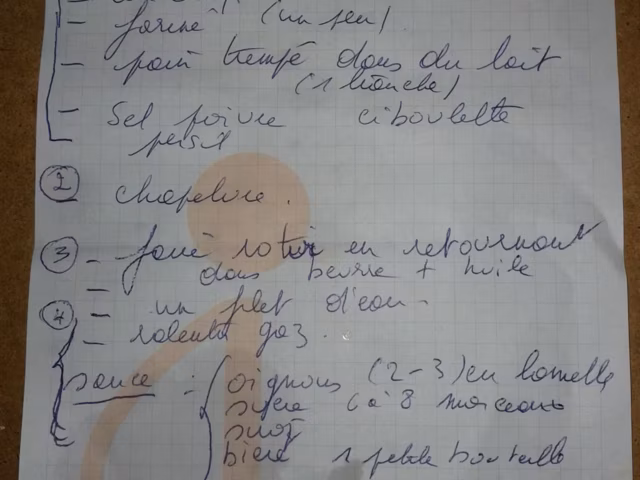 - farine (un peu)
- pain trempé dans du lait
(1 tranche)
- Sel poivre ciboulette
persil
2 chapelure.
3 - faire rotir en retournant
dans beurre + huile
- un filet d'eau -
4 - ralentir gaz.
sauce : oignons (2-3) en lamelle
sucre 6 à 8 morceaux
bière 1 petite bouteille